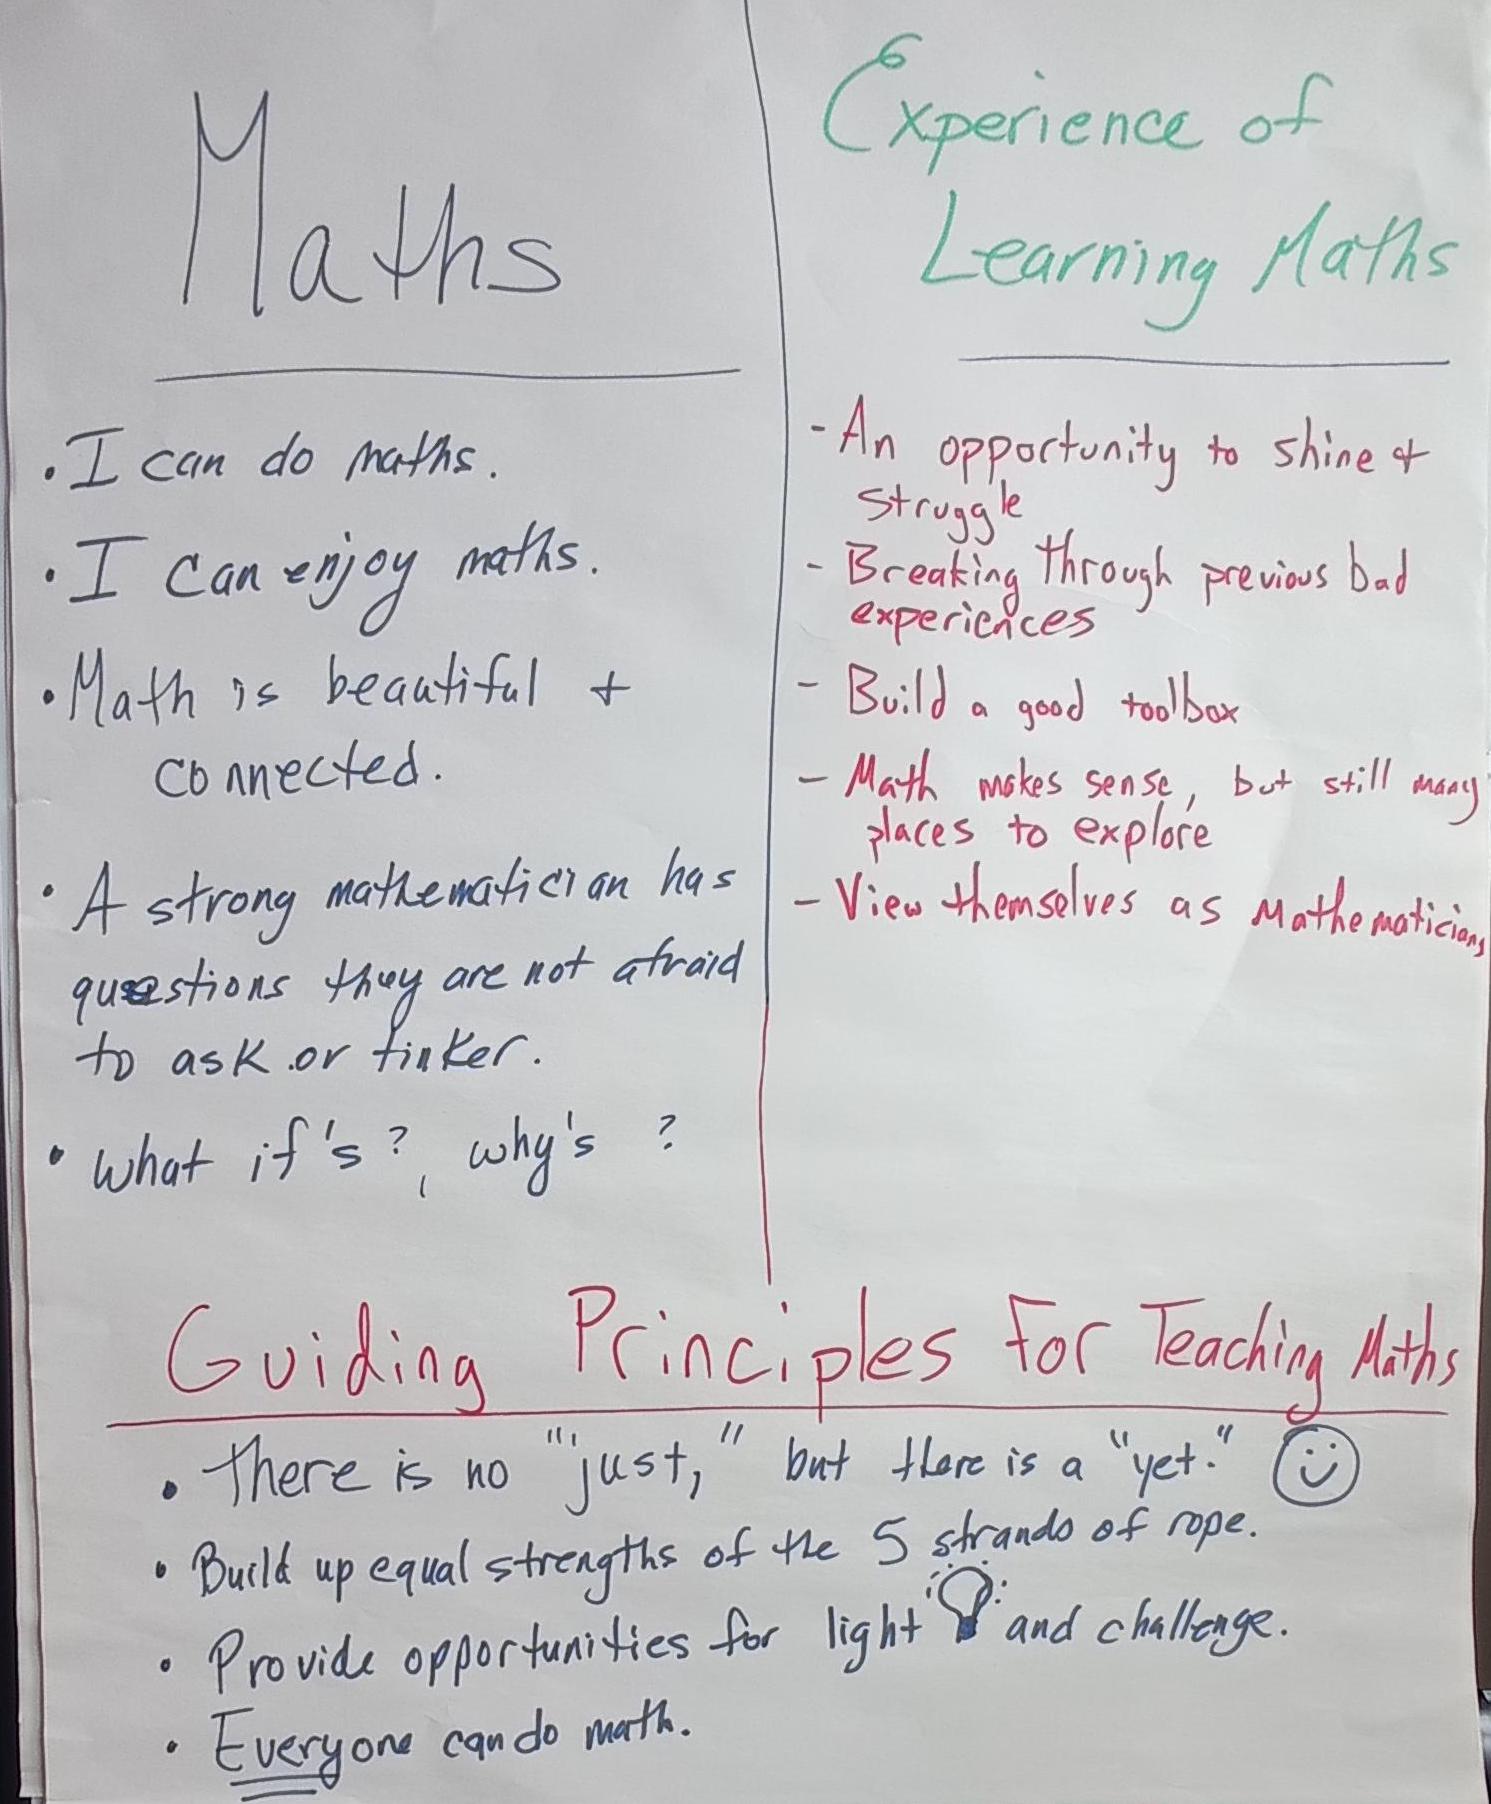 Maths
• I can do maths.
• I can enjoy maths.
• Math is beautiful +
connected.
• A strong mathematician has
questions they are not afraid
to ask or tinker.
• What if's?, why's ?
Experience of
Learning Maths
- An opportunity to shine +
struggle
- Breaking through previous bad
experiences
- Build a good toolbox
- Math makes sense, but still many
places to explore
- View themselves as Mathematicians
Guiding Principles For Teaching Maths
• There is no "just," but there is a "yet."
• Build up equal strengths of the 5 strands of rope.
• Provide opportunities for light and challenge.
• Everyone can do math.